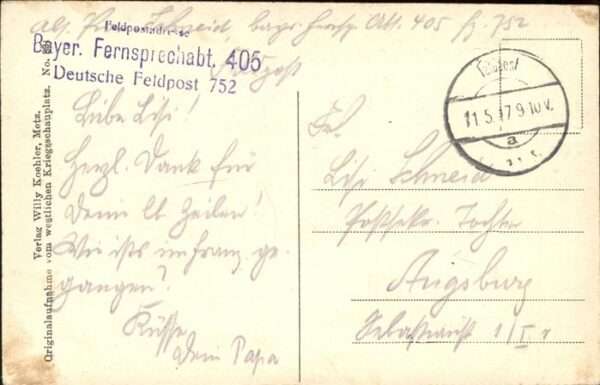 Schneid, bayr. Fernspr. Abt. 405 fp. 752
Feldpostadresse
Bayer. Fernsprechabt. 405
Deutsche Feldpost 752
11.5.17 9-10 V.
a
Verlag Willy Koehler, Metz.
Originalaufnahme vom westlichen Kriegsschauplatz. No.
Liebe Lisi!
Herzl. Dank für
Deine lb. Zeilen!
Wie ists im franz. ge-
gangen?
Küsse
Dein Papa
Frl.
Lisi Schneid
Postsekr. Tochter
Augsburg
1/I r